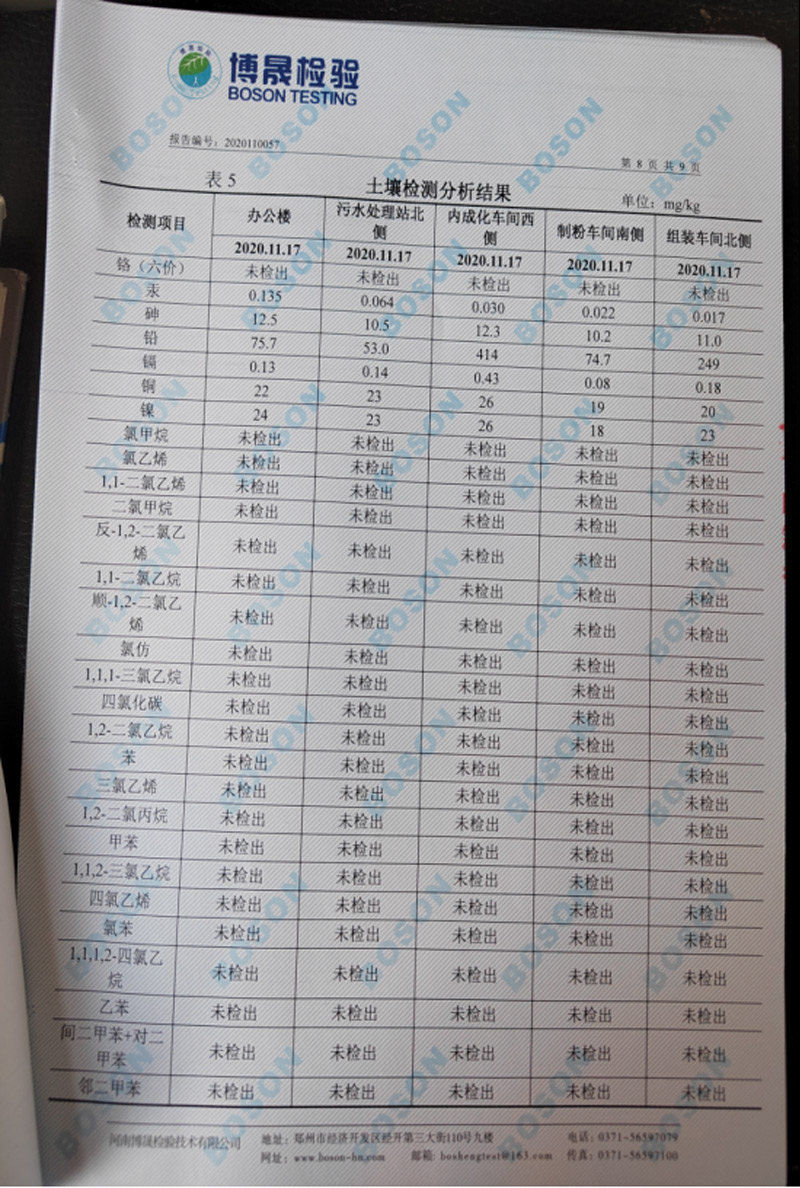 博晟检验
BOSON TESTING
报告编号：2020110057
第 8 页 共 9 页
表 5 土壤检测分析结果 单位：mg/kg
检测项目 办公楼 污水处理站北侧 内成化车间西侧 制粉车间南侧 组装车间北侧
2020.11.17 2020.11.17 2020.11.17 2020.11.17 2020.11.17
铬（六价） 未检出 未检出 未检出 未检出 未检出
汞 0.135 0.064 0.030 0.022 0.017
砷 12.5 10.5 12.3 10.2 11.0
铅 75.7 53.0 414 74.7 249
镉 0.13 0.14 0.43 0.08 0.18
铜 22 23 26 19 20
镍 24 23 26 18 23
氯甲烷 未检出 未检出 未检出 未检出 未检出
氯乙烯 未检出 未检出 未检出 未检出 未检出
1,1-二氯乙烯 未检出 未检出 未检出 未检出 未检出
二氯甲烷 未检出 未检出 未检出 未检出 未检出
反-1,2-二氯乙烯 未检出 未检出 未检出 未检出 未检出
1,1-二氯乙烷 未检出 未检出 未检出 未检出 未检出
顺-1,2-二氯乙烯 未检出 未检出 未检出 未检出 未检出
氯仿 未检出 未检出 未检出 未检出 未检出
1,1,1-三氯乙烷 未检出 未检出 未检出 未检出 未检出
四氯化碳 未检出 未检出 未检出 未检出 未检出
1,2-二氯乙烷 未检出 未检出 未检出 未检出 未检出
苯 未检出 未检出 未检出 未检出 未检出
三氯乙烯 未检出 未检出 未检出 未检出 未检出
1,2-二氯丙烷 未检出 未检出 未检出 未检出 未检出
甲苯 未检出 未检出 未检出 未检出 未检出
1,1,2-三氯乙烷 未检出 未检出 未检出 未检出 未检出
四氯乙烯 未检出 未检出 未检出 未检出 未检出
氯苯 未检出 未检出 未检出 未检出 未检出
1,1,1,2-四氯乙烷 未检出 未检出 未检出 未检出 未检出
乙苯 未检出 未检出 未检出 未检出 未检出
间二甲苯+对二甲苯 未检出 未检出 未检出 未检出 未检出
邻二甲苯 未检出 未检出 未检出 未检出 未检出
河南博晟检验技术有限公司 地址：郑州市经济开发区经开第三大街110号九楼 电话：0371-56597079
网址：www.boson-hn.com 邮箱：boshengtest@163.com 传真：0371-56597100